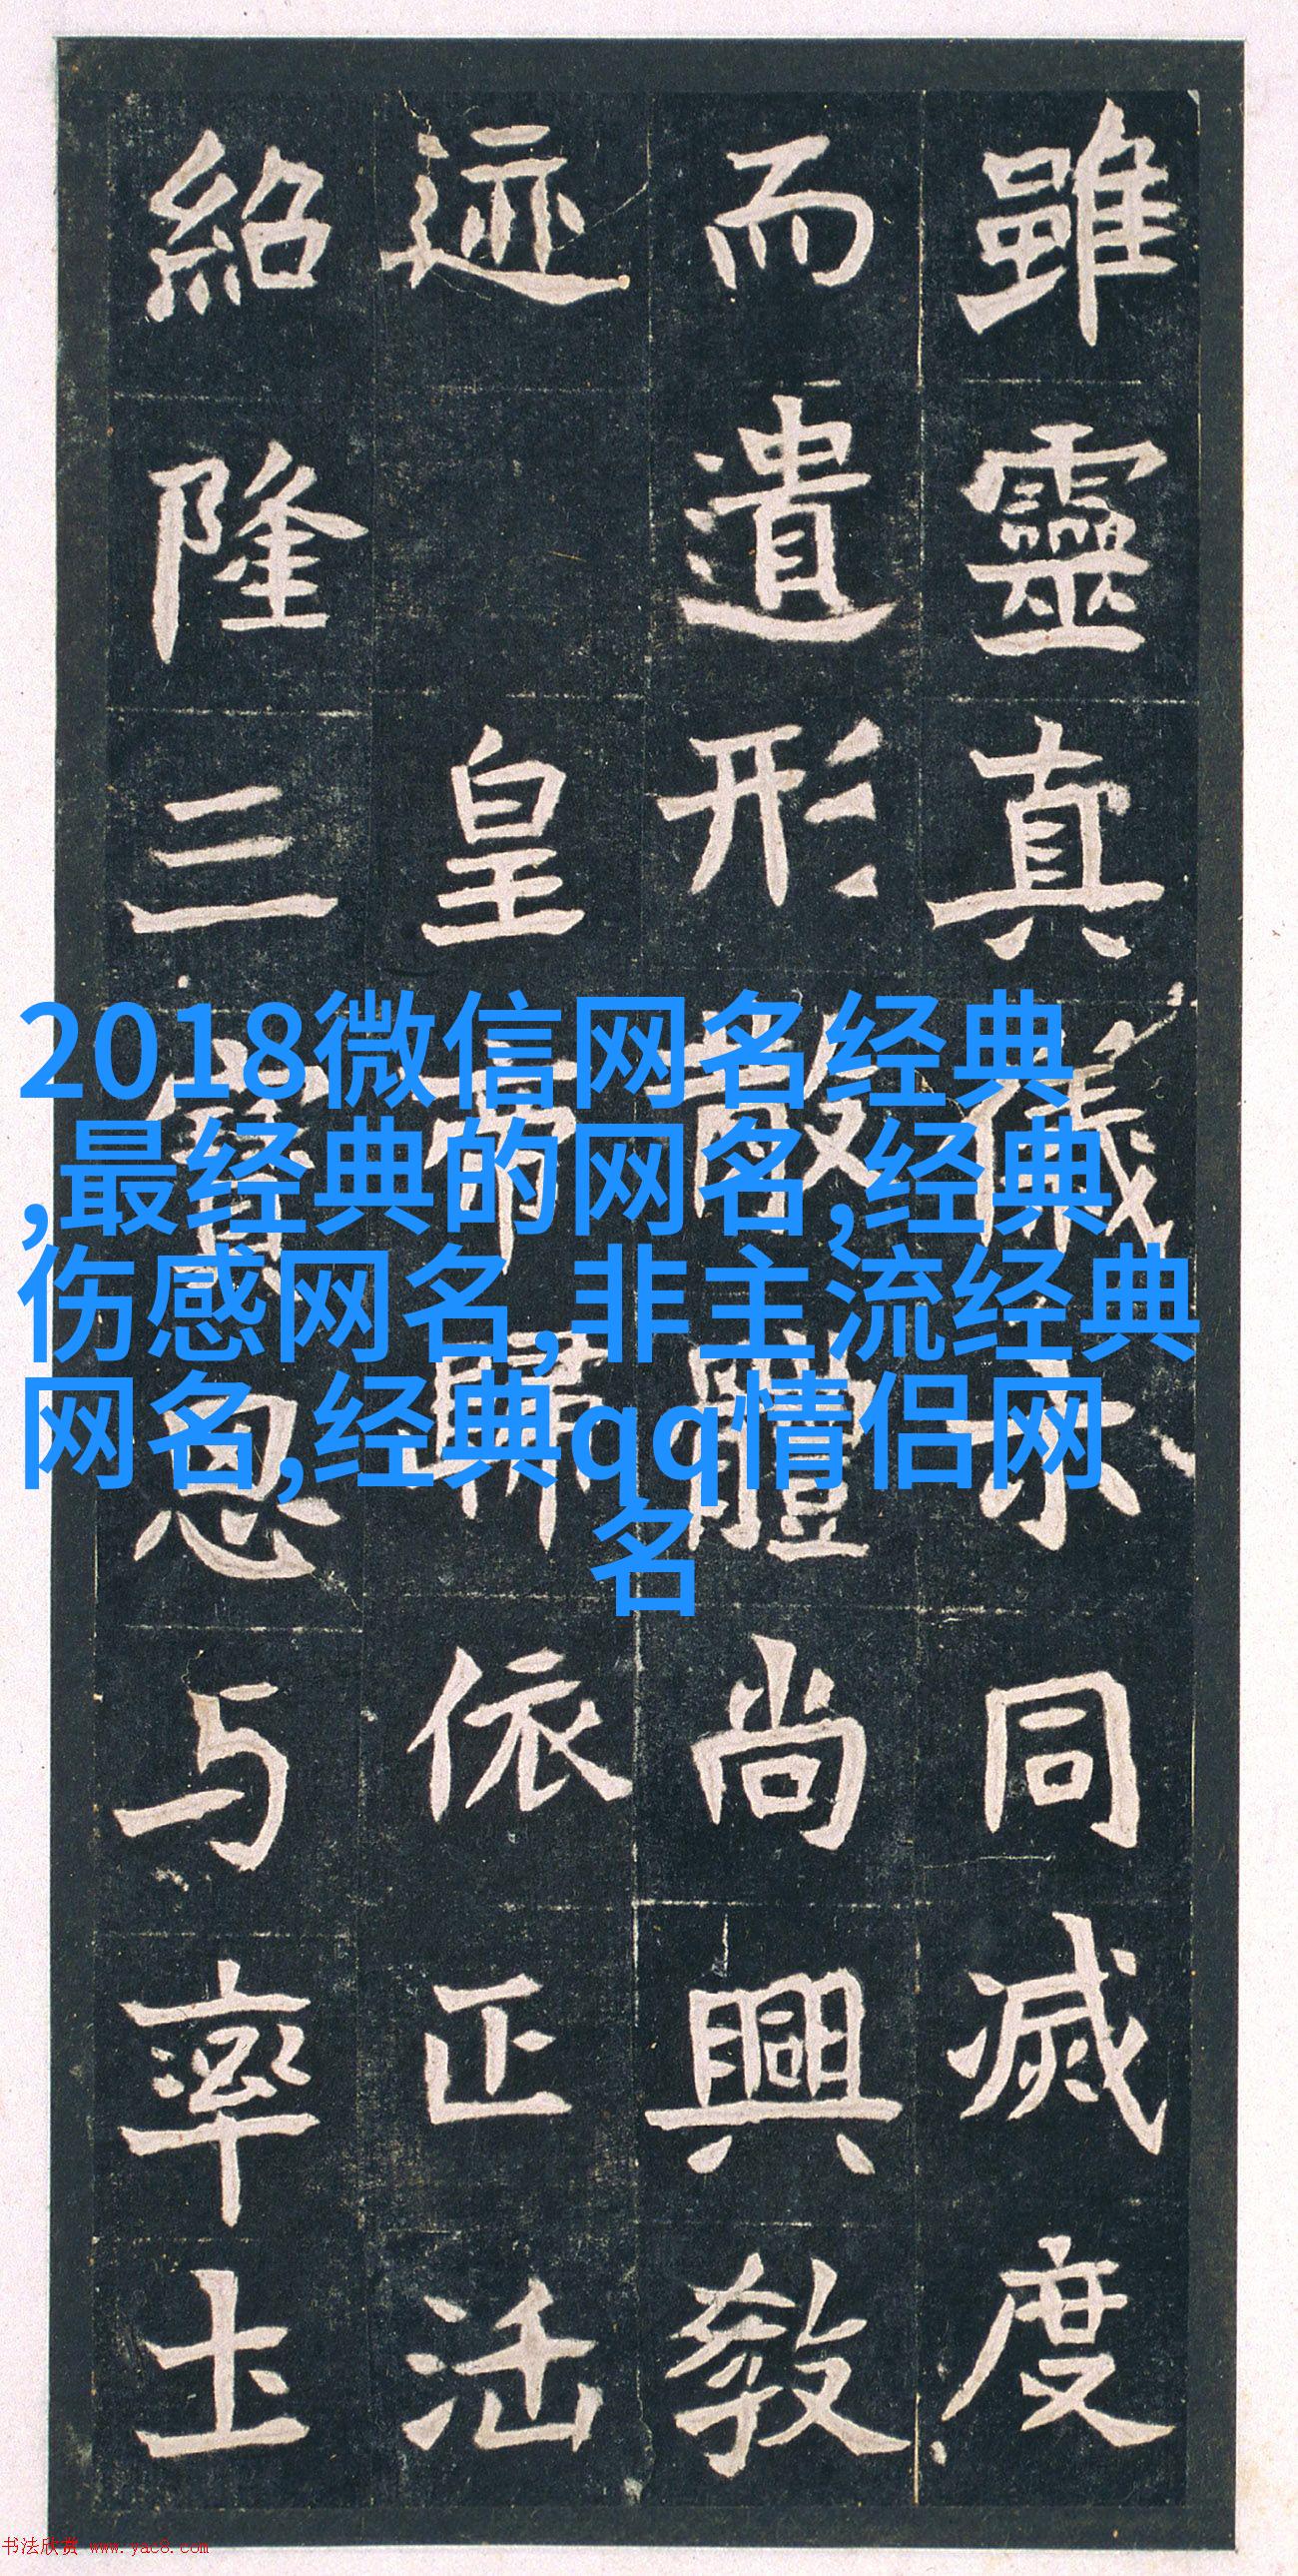 2018微信网名经典
,最经典的网名,经典
伤感网名,非主流经典
网名,经典qq情侣网
名
雖靈真儀示同滅度
而遺形散體尚興教
迹 皇帝歸依正法
紹隆三寶思与率土
书法欣赏 www.yac8.com